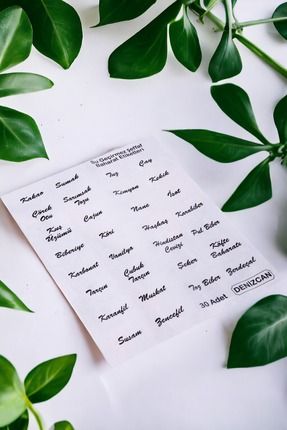 Su Geçirmez Şeffaf
Baharat Etiketleri
Kakao Sumak Tuz Çay
Çörek Otu Sarımsak Tozu Kimyon Kekik
Kuş Üzümü Cajun Nane İsot
Biberiye Köri Haşhaş Karabiber
Karbonat Vanilya Hindistan Cevizi Pul Biber
Tarçın Çubuk Tarçın Şeker Köfte Baharatı
Karanfil Muskat Toz Biber Zerdeçal
Susam Zencefil 30 Adet
DENİZCAN